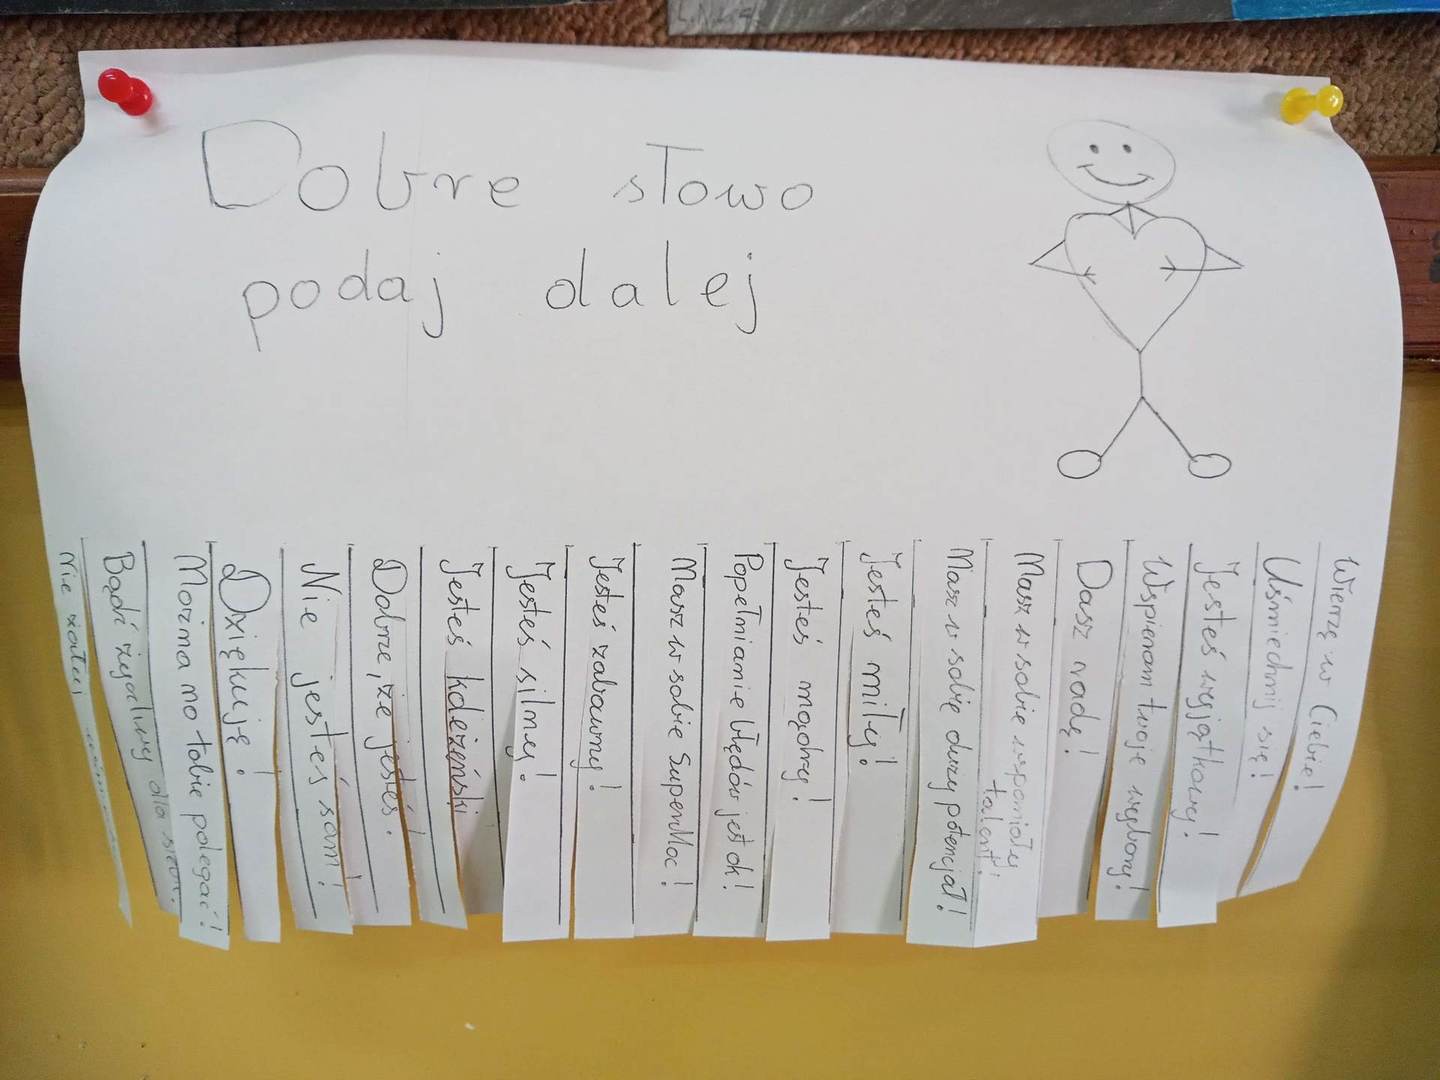 Dobre słowo
podaj dalej
Nie
Bądź życzliwy dla
Można na tobie polegać!
Dziękuję!
Nie jesteś sam!
Dobrze, że jesteś!
Jesteś koleżeński
Jesteś silny!
Jesteś zabawny!
Masz w sobie SuperMoc!
Popełnianie błędów jest ok!
Jesteś mądry!
Jesteś miły!
Masz w sobie duży potencjał!
Masz w sobie wspaniały
talent!
Dasz radę!
Wspieram twoje wybory!
Jesteś wyjątkowy!
Uśmiechnij się!
Wierzę w Ciebie!